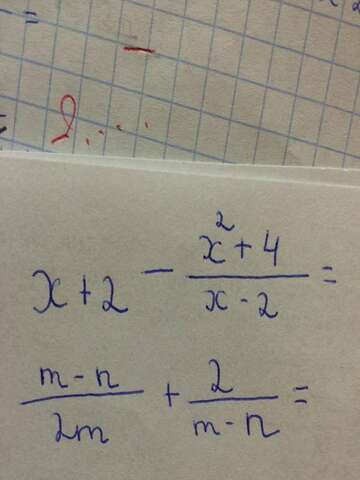 x + 2 - \frac{x^2 + 4}{x - 2} =
\frac{m - n}{2m} + \frac{2}{m - n} =